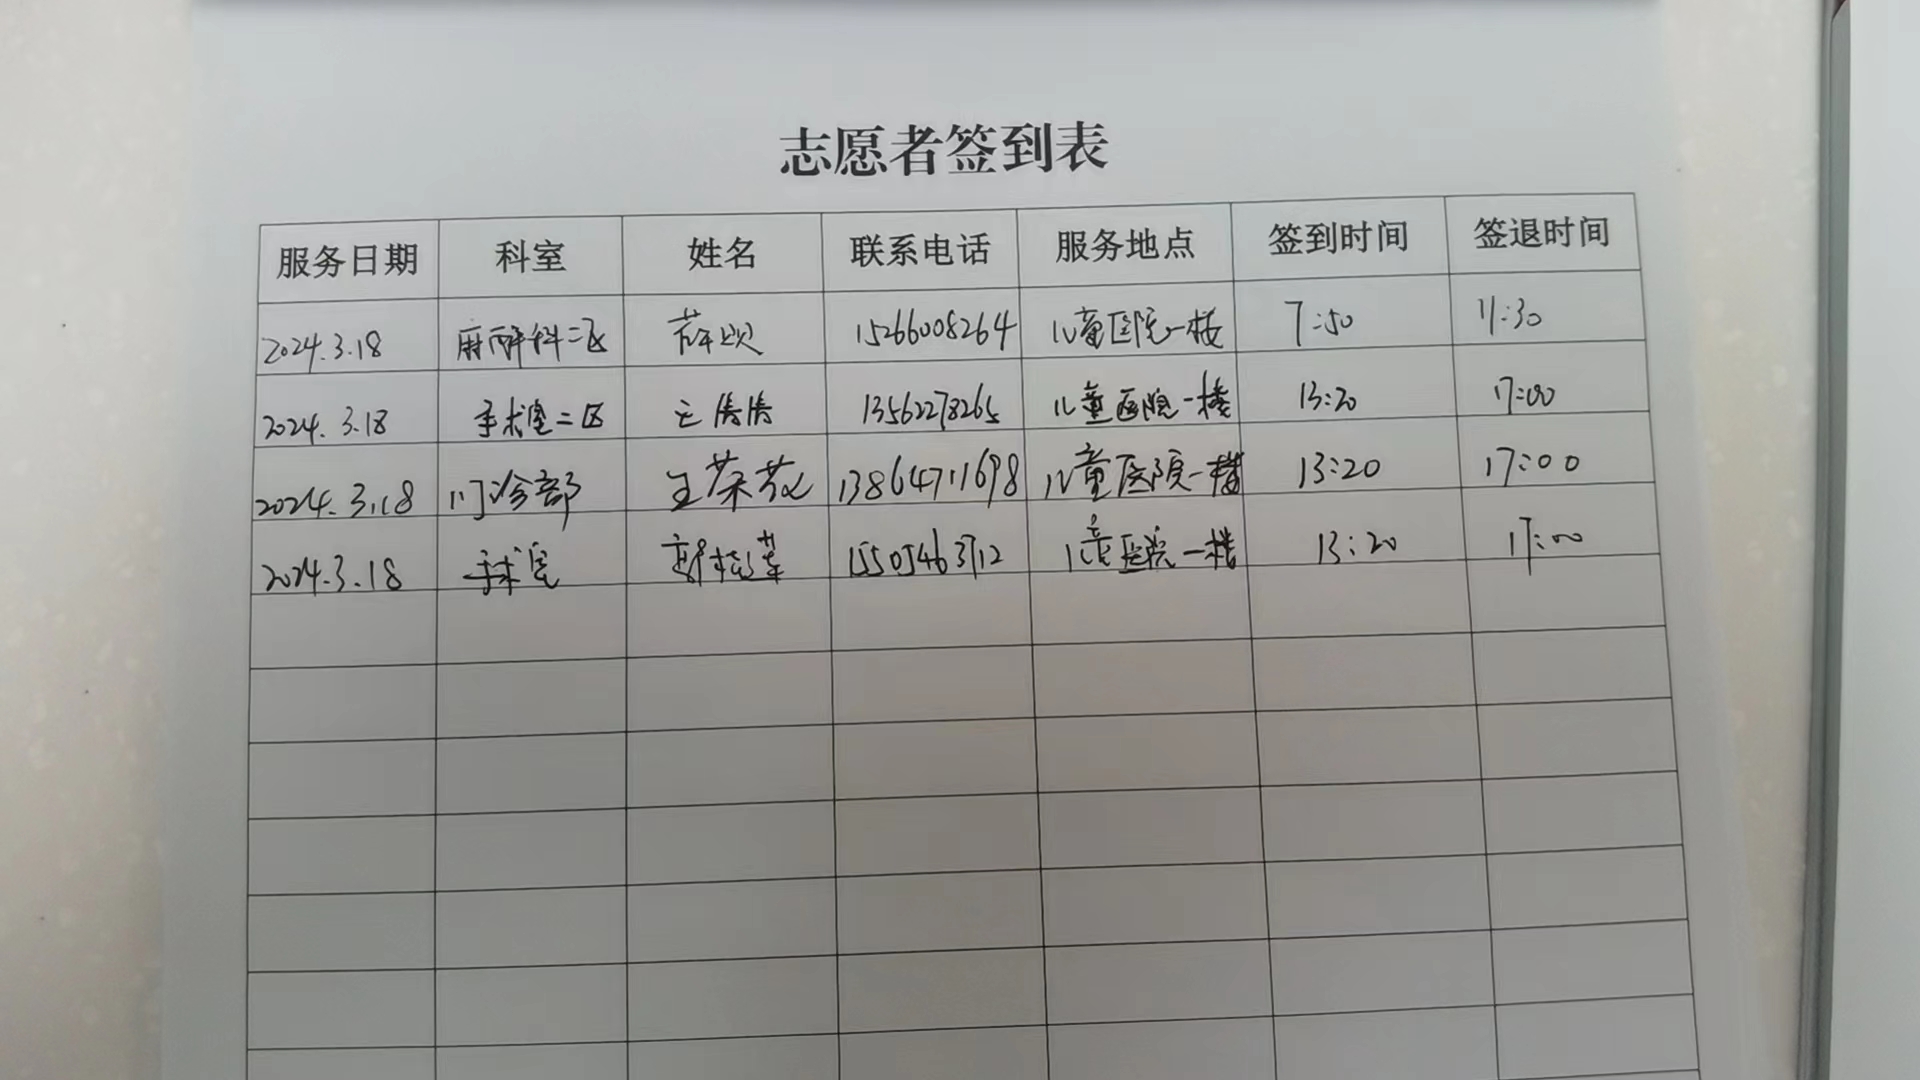 志愿者签到表
服务日期 科室 姓名 联系电话 服务地点 签到时间 签退时间
2024.3.18 麻醉科二区 15266008264 儿童医院一楼 7:50 11:30
2024.3.18 手术室二区 13562278265 儿童医院一楼 13:20 17:00
2024.3.18 门诊部 13864711698 儿童医院一楼 13:20 17:00
2024.3.18 手术室 15505463712 儿童医院一楼 13:20 17:00